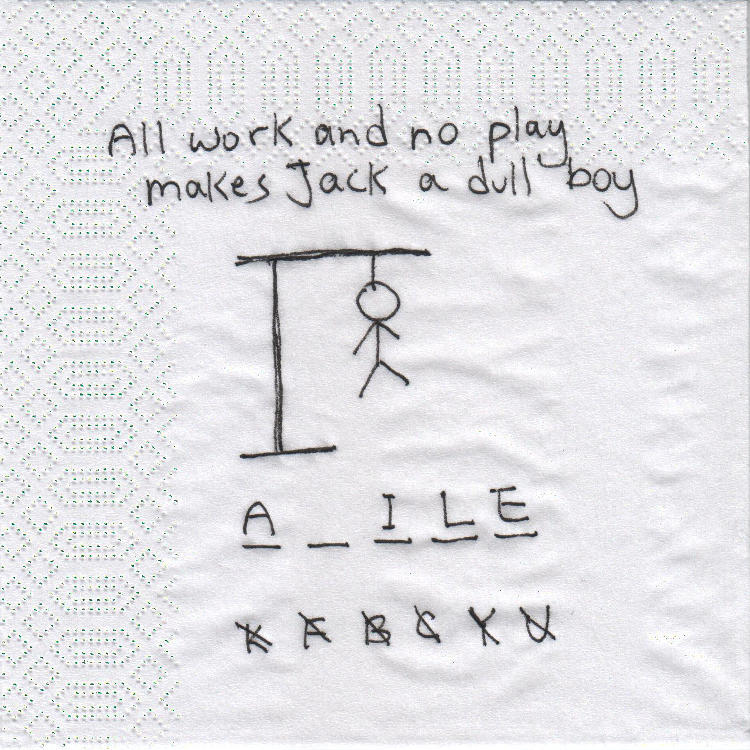 All work and no play
makes Jack a dull boy
A _ I L E
K F B C Y U